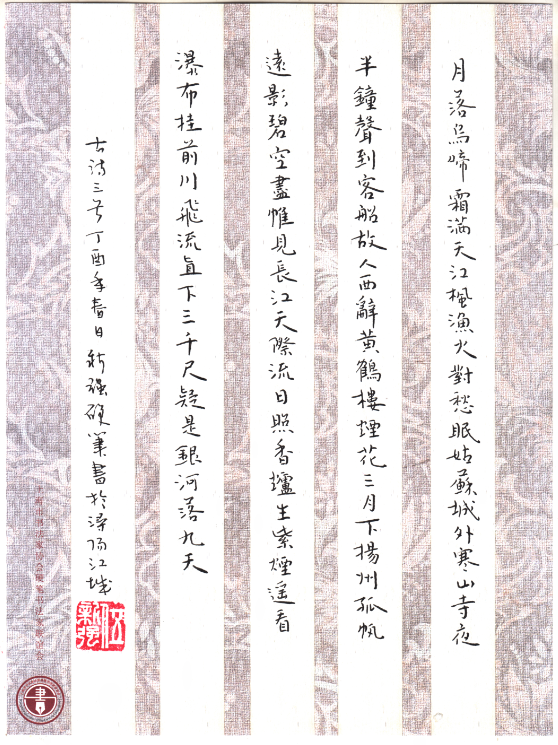 月落烏啼霜滿天江楓漁火對愁眠姑蘇城外寒山寺夜
半鐘聲到客船故人西辭黃鶴樓煙花三月下揚州孤帆
遠影碧空盡惟見長江天際流日照香爐生紫煙遙看
瀑布挂前川飛流直下三千尺疑是銀河落九天
古诗三首丁酉年春日新强硬筆書於潯陽江城
新强
書